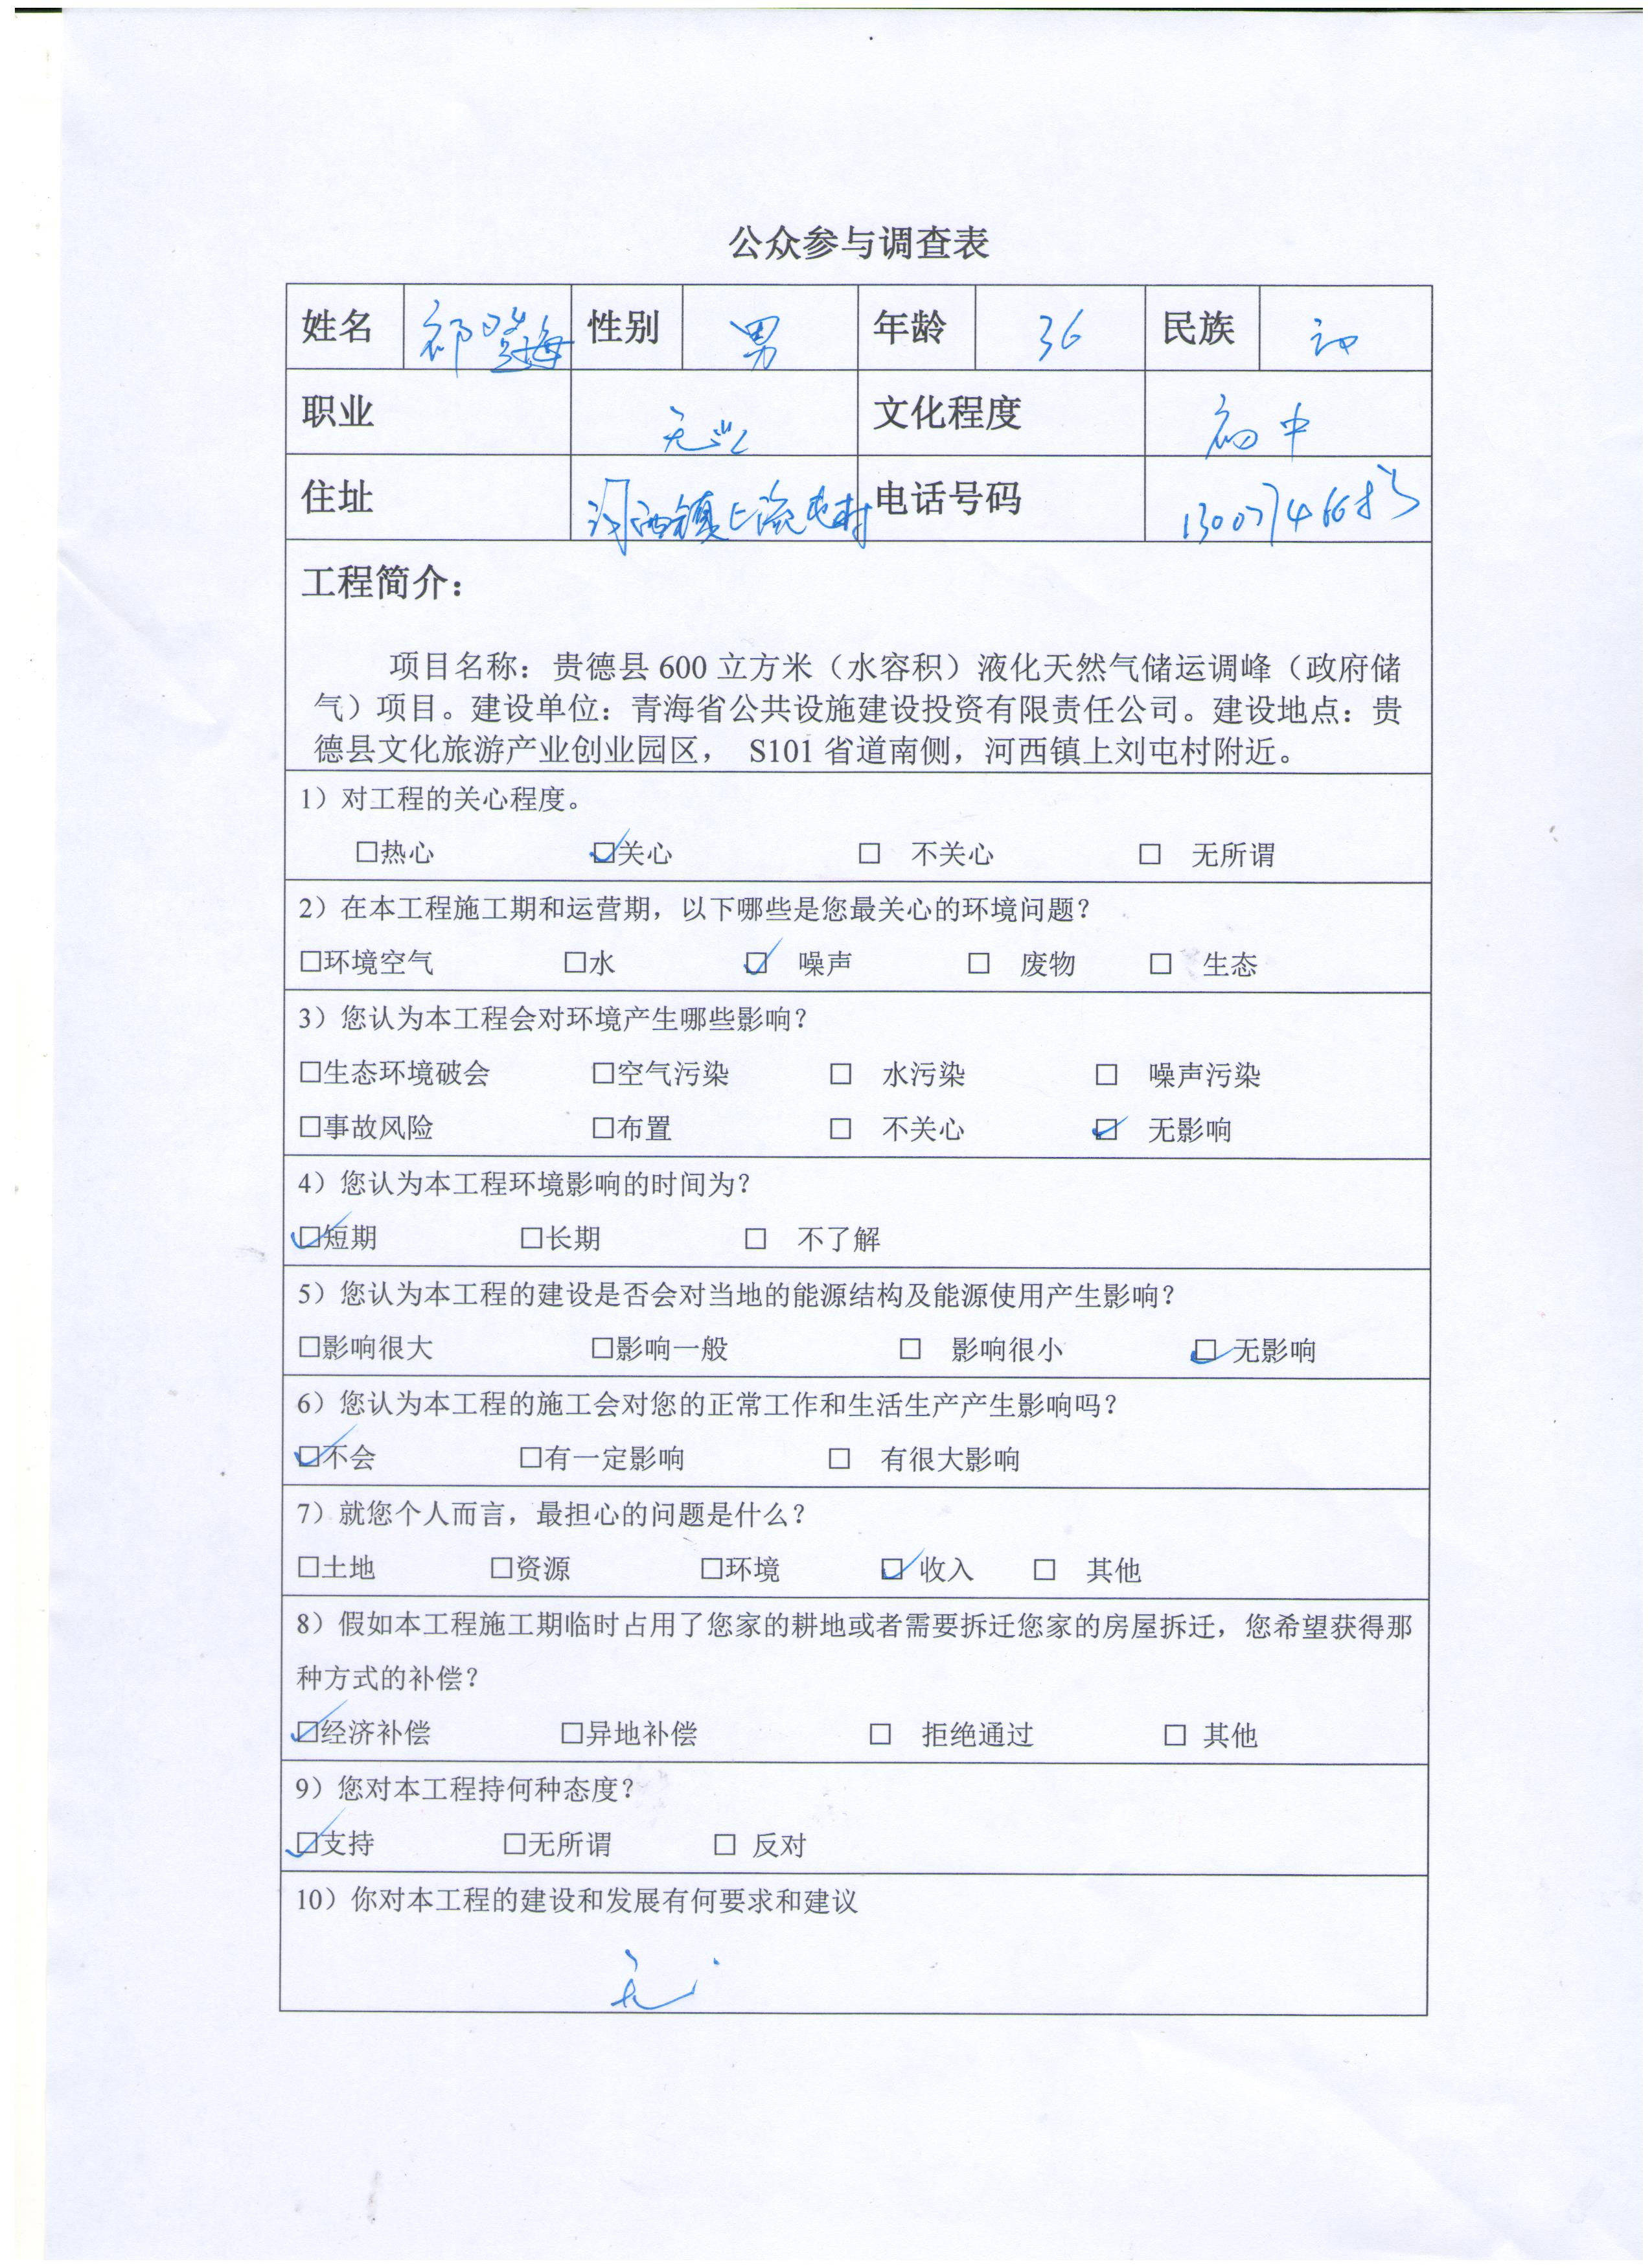 公众参与调查表
姓名 祁 海 性别 男 年龄 36 民族
职业 无业 文化程度 初中
住址 河西镇上 屯村 电话号码
工程简介：
项目名称：贵德县 600 立方米（水容积）液化天然气储运调峰（政府储
气）项目。建设单位：青海省公共设施建设投资有限责任公司。建设地点：贵
德县文化旅游产业创业园区， S101 省道南侧，河西镇上刘屯村附近。
1）对工程的关心程度。
□热心 ☑关心 □ 不关心 □ 无所谓
2）在本工程施工期和运营期，以下哪些是您最关心的环境问题？
□环境空气 □水 ☑ 噪声 □ 废物 □ 生态
3）您认为本工程会对环境产生哪些影响？
□生态环境破会 □空气污染 □ 水污染 □ 噪声污染
□事故风险 □布置 □ 不关心 ☑ 无影响
4）您认为本工程环境影响的时间为？
☑短期 □长期 □ 不了解
5）您认为本工程的建设是否会对当地的能源结构及能源使用产生影响？
□影响很大 □影响一般 □ 影响很小 ☑ 无影响
6）您认为本工程的施工会对您的正常工作和生活生产产生影响吗？
☑不会 □有一定影响 □ 有很大影响
7）就您个人而言，最担心的问题是什么？
□土地 □资源 □环境 ☑ 收入 □ 其他
8）假如本工程施工期临时占用了您家的耕地或者需要拆迁您家的房屋拆迁，您希望获得那
种方式的补偿？
☑经济补偿 □异地补偿 □ 拒绝通过 □ 其他
9）您对本工程持何种态度？
☑支持 □无所谓 □ 反对
10）你对本工程的建设和发展有何要求和建议
无